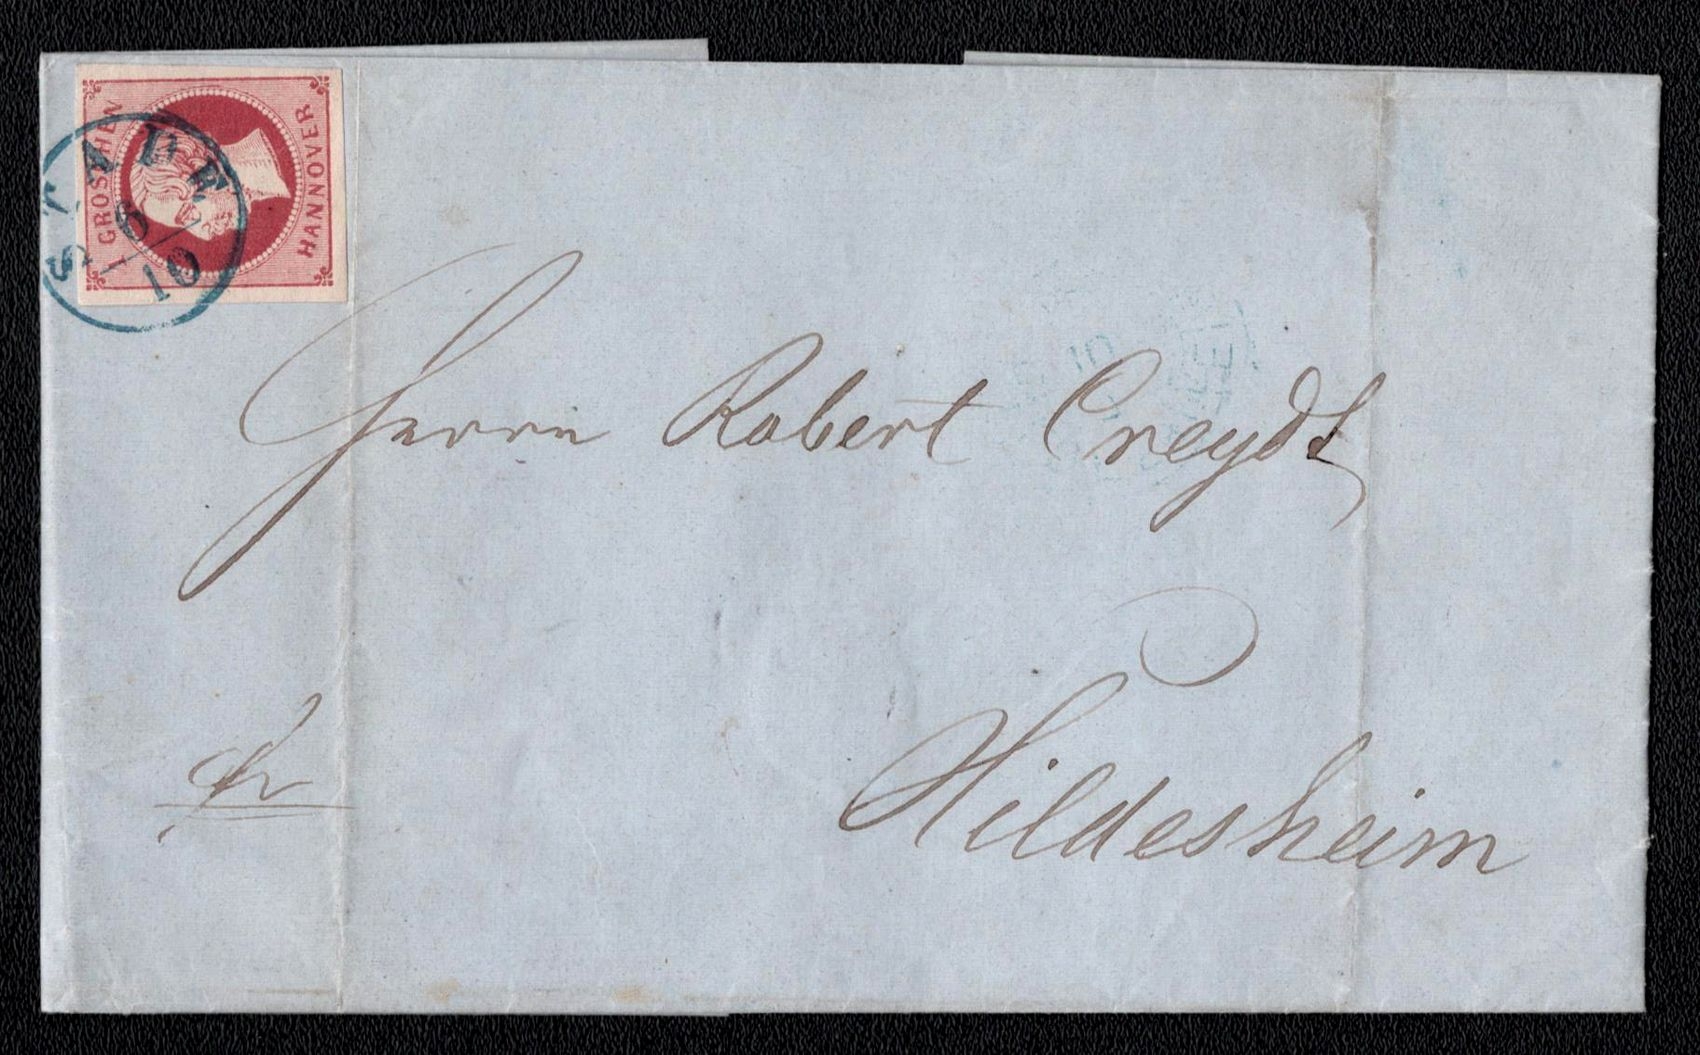 1 GROSCHEN
HANNOVER
STADE
6/10
Herrn Robert Creydt
Hildesheim
fr